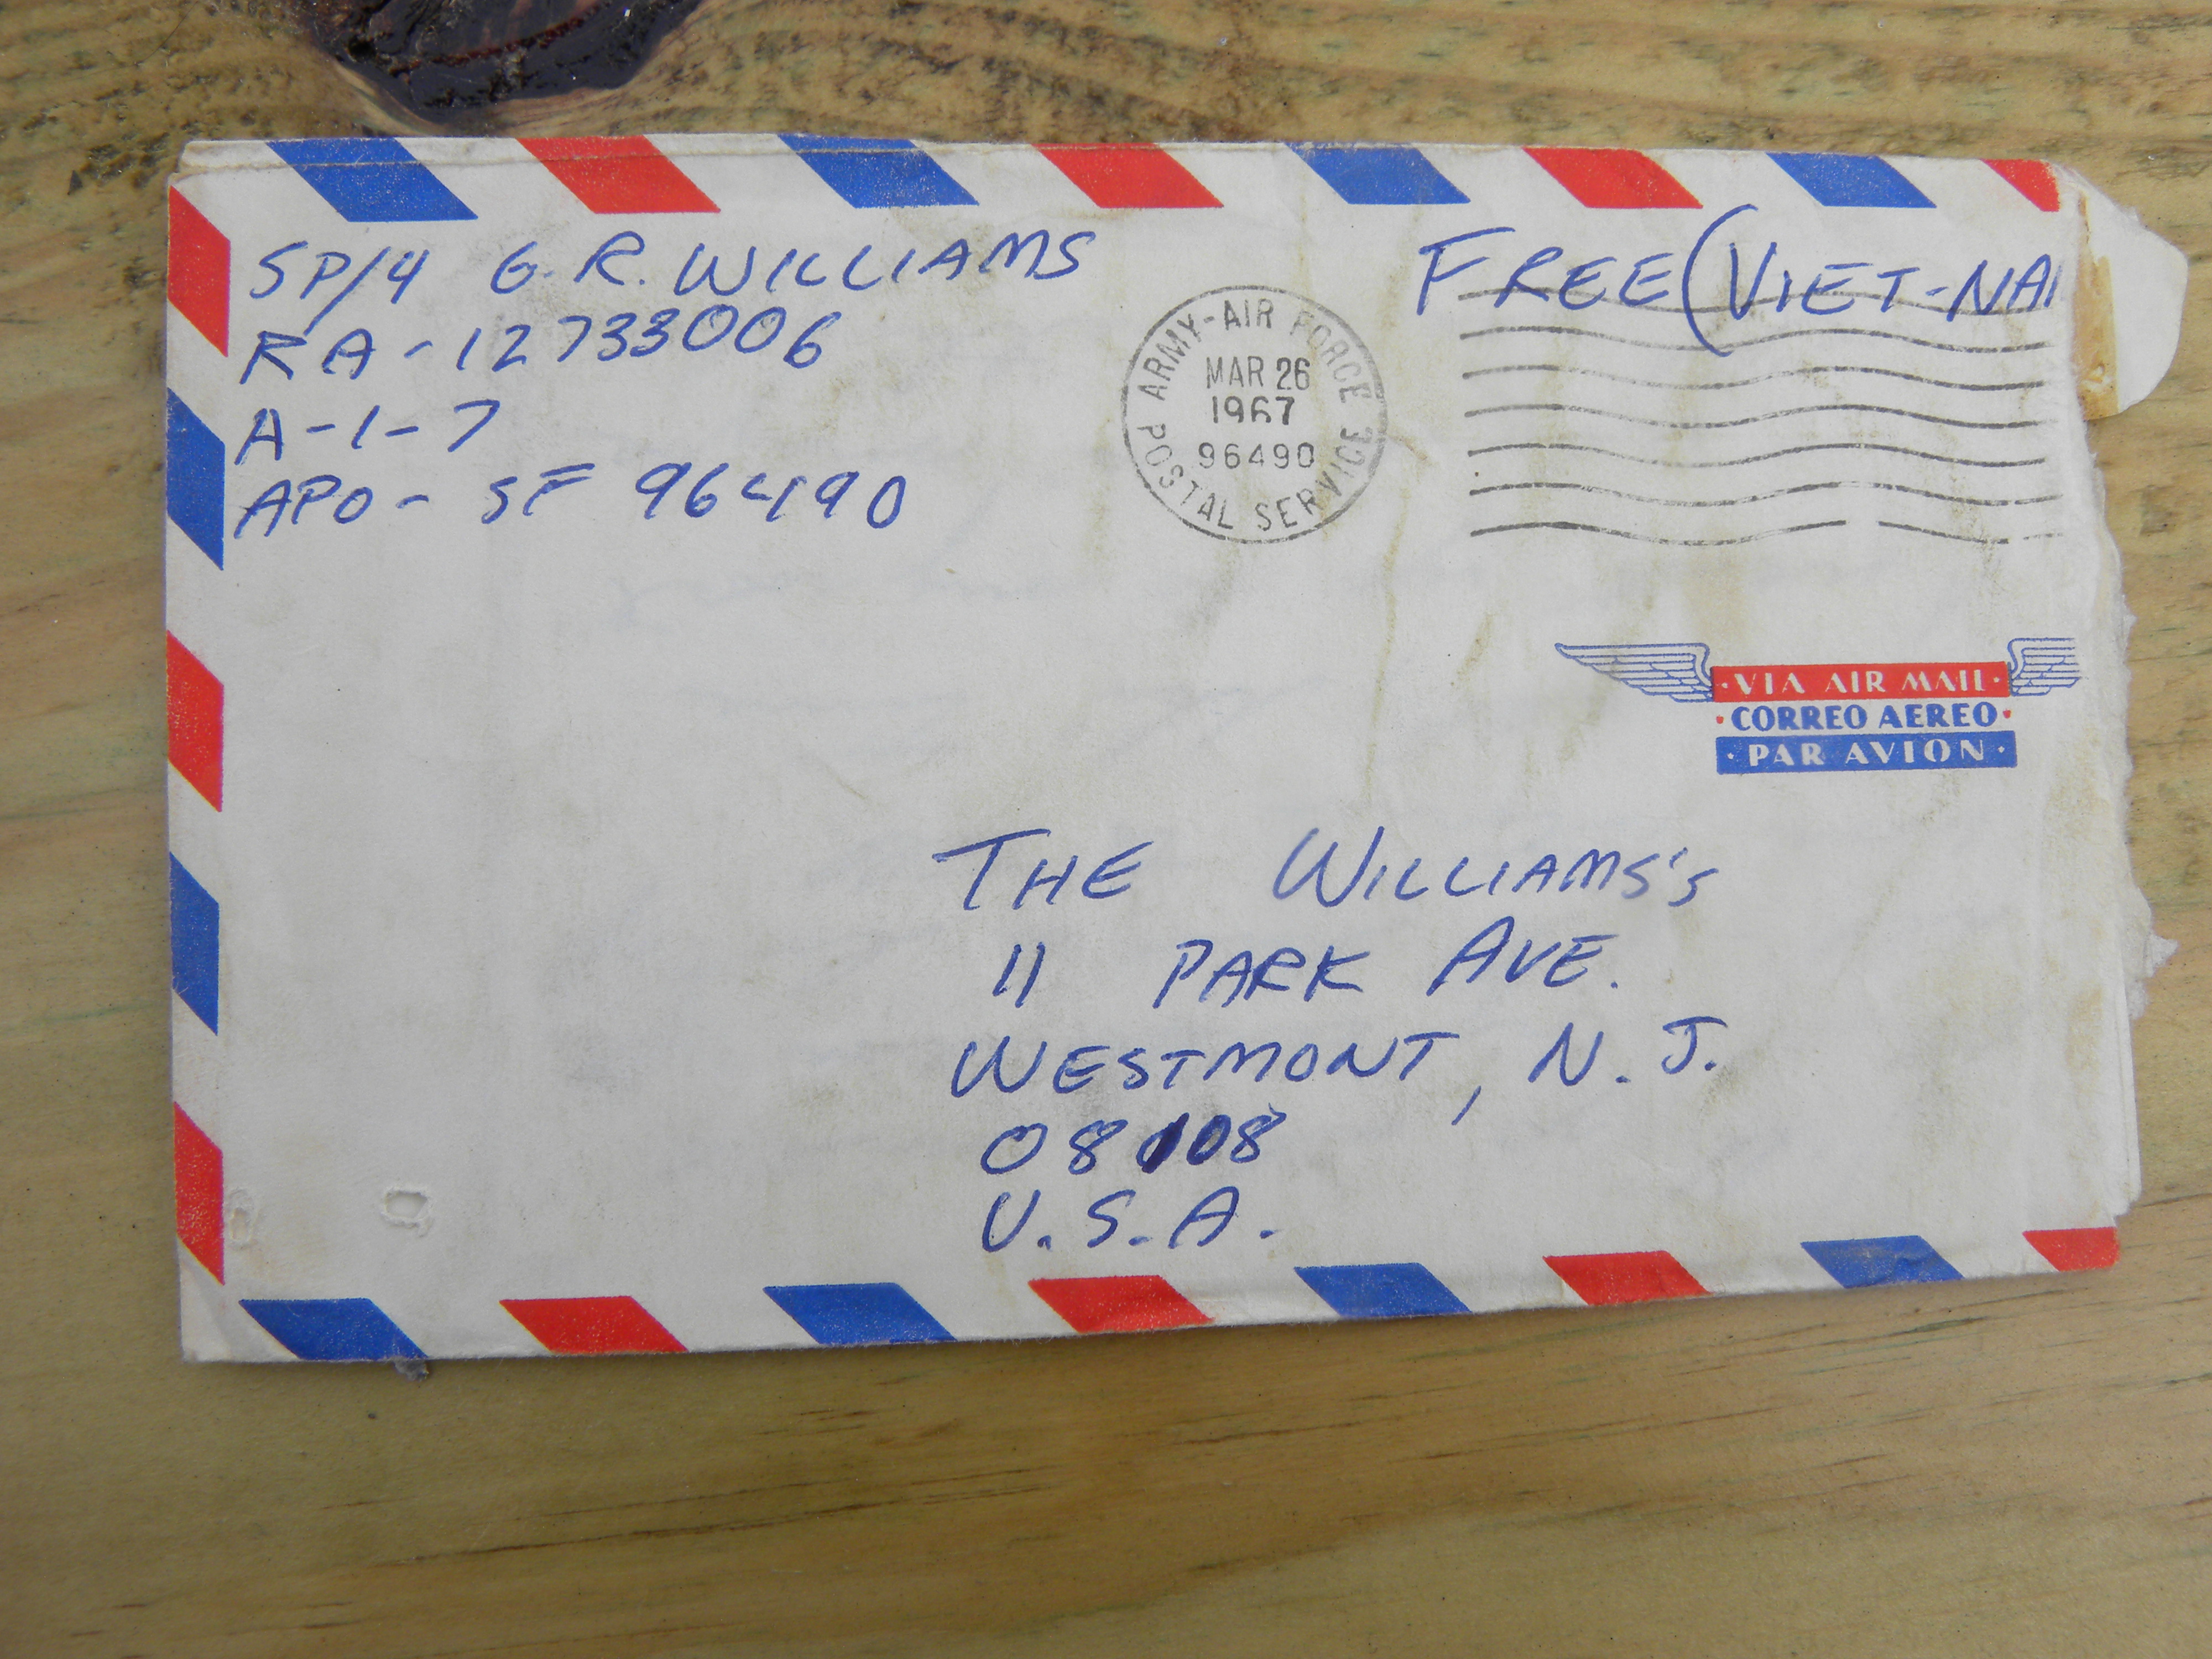 SP/4 G. R. WILLIAMS
RA-12733006
A-1-7
APO- SF 96490
ARMY-AIR FORCE POSTAL SERVICE
MAR 26
1967
96490
FREE (VIET-NA
VIA AIR MAIL
CORREO AEREO
PAR AVION
THE WILLIAMS'S
11 PARK AVE.
WESTMONT, N. J.
08108
U.S.A.